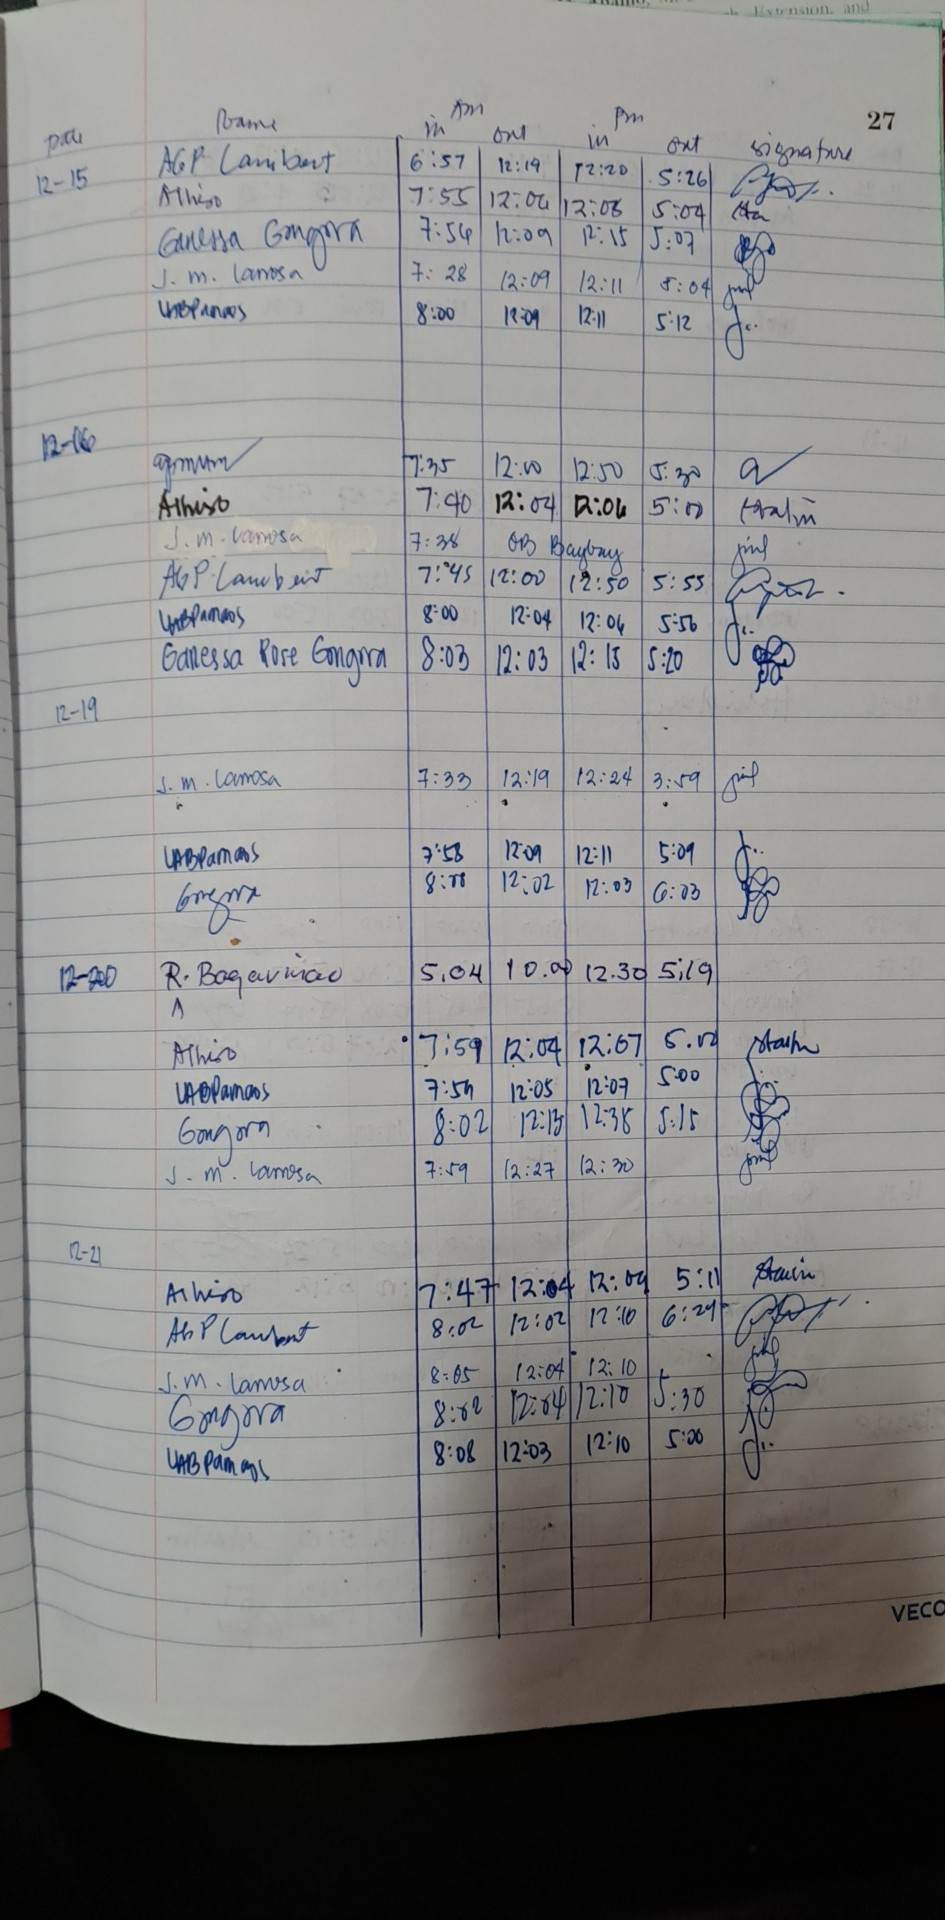 Extension, and
27
Date Name Am Pm
in out in out signature
12-15 AGP Lambert 6:57 12:19 12:20 5:26
Alhiso 7:55 12:06 12:08 5:04
Ganessa Gongora 7:54 12:09 12:15 5:07
J. m. Lamosa 7:28 12:09 12:11 5:04
UABPamaos 8:00 12:09 12:11 5:12
12-16
7:35 12:00 12:50 5:30
Alhiso 7:40 12:04 12:06 5:00
J. m. Lamosa 7:38 OB Baybay
AGP Lambert 7:45 12:00 12:50 5:55
UABPamaos 8:00 12:04 12:06 5:56
Ganessa Rose Gongora 8:03 12:03 12:15 5:20
12-19
J. m. Lamosa 7:33 12:19 12:24 3:59
UABPamaos 7:58 12:09 12:11 5:09
Gongora 8:00 12:02 12:03 6:03
12-20 R. Bagarinao 5.04 10.00 12.30 5:19
A
Alhiso 7:59 12:04 12:07 5.00
UABPamaos 7:59 12:05 12:07 5:00
Gongora 8:02 12:13 12:38 5:15
J. m. Lamosa 7:59 12:27 12:30
12-21
Alhiso 7:47 12:04 12:09 5:11
AGP Lambert 8:02 12:02 12:10 6:29
J. m. Lamosa 8:05 12:04 12:10
Gongora 8:02 12:04 12:10 5:30
UABPamaos 8:08 12:03 12:10 5:00
VECO